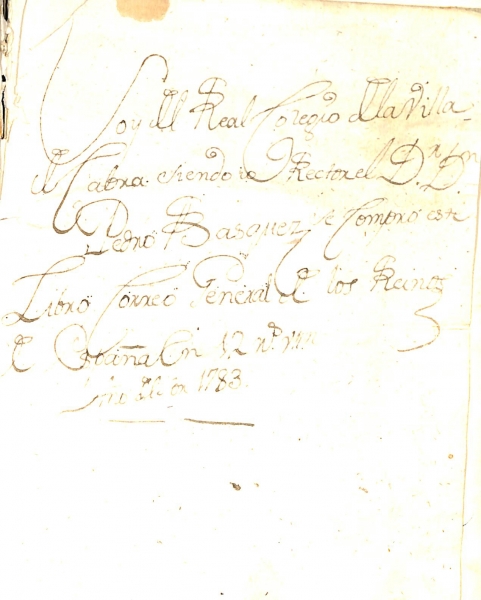 Soy del Real Colegio de la Villa
de Cabra siendo Rector el Dr. Dn.
Pedro Basquez se Compro este
Libro Correo General de los Reinos
de España En 12 rs. vn.
de 1783.